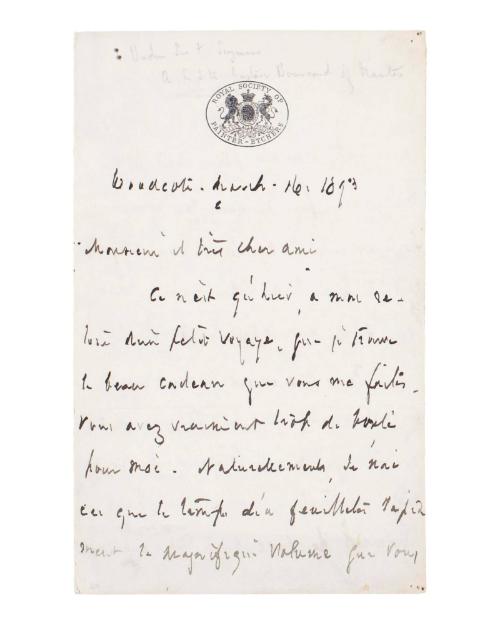 ROYAL SOCIETY OF
PAINTER-ETCHERS
Woodcote. March. 16. 1893
Monsieur et très cher ami
Ce n'est qu'hier, a mon re-
tour d'un petit voyage, que je trouve
le beau cadeau que vous me faites.
Vous avez vraiment trop de bonté
pour moi. Naturellement, je n'ai
eu que le temps d'en feuilleter rapide
ment le magnifique volume que vous